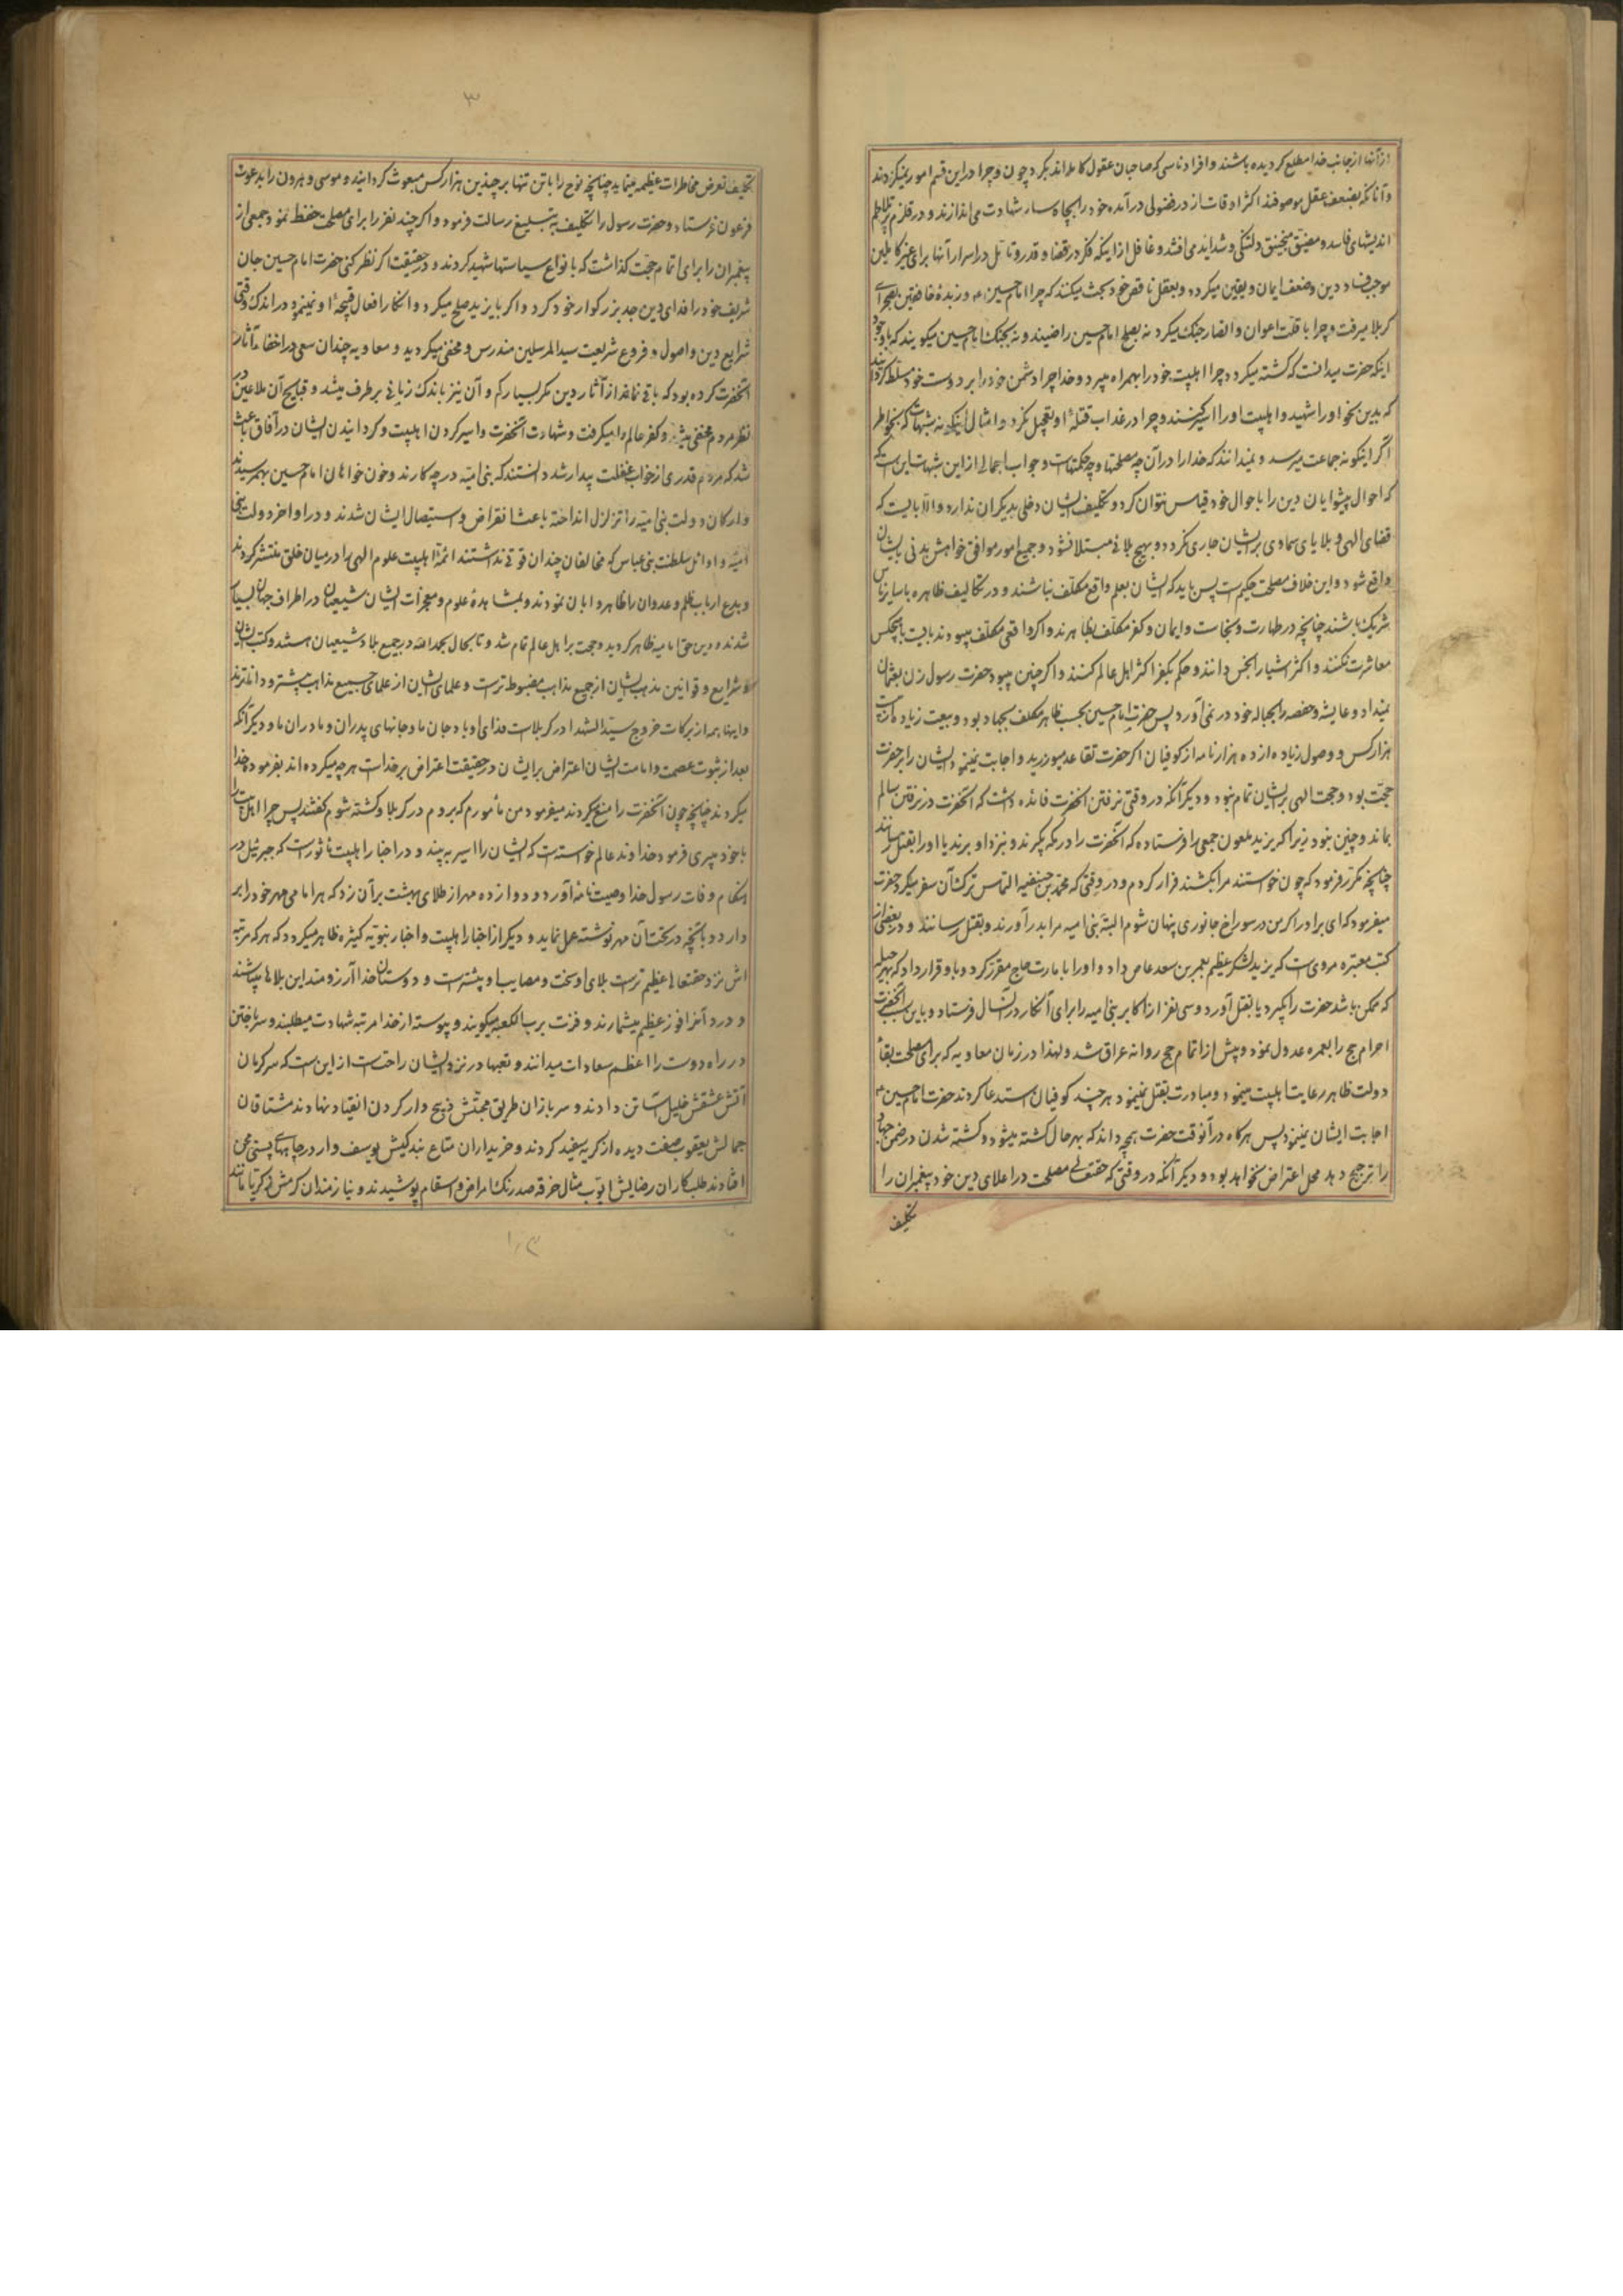 از آنها از جانب خدا مطلع کردیده باشند و افراد ناسی که صاحبان عقول کامله اند بکرد چون و چرا در این قسم امور نمیکردند
و آنانکه بضعف عقل موصوفند اکثر اوقات از در فضولی درآمده خود را بچاه سار شهادت می اندازند و در قلزم پرتلاطم
اندیشهای فاسد و مضیق منجنیق دلتنکی و شداید می افتند و غافل از اینکه فکر در قضا و قدر و تامل در اسرار آنها برای غیر کاملین
موجب فساد دین و ضعف ایمان و یقین میکردد و بعقل ناقص خود بحث میکنند که چرا امام حسین و زبدهٔ خافقین بصحرای
کربلا میرفت و چرا با قلت اعوان و انصار جنک میکرد نه بصلح امام حسن راضیند و نه بجنک امام حسین میکویند که با وجود
اینکه حضرت میدانست که کشته میکردد چرا اهلبیت خود را بهمراه میبرد و خدا چرا دشمن خود را بر دوست خود مسلط کردانید
که بدین نحو او را شهید و اهلبیت او را اسیر کنند و چرا در عذاب قتلهٔ او تعجیل نکرد و امثال اینکونه شبهات که بخاطر
اکثر اینکونه جماعت میرسد و نمیدانند که خدا را در آن چه مصلحتها و چه حکمتهاست و جواب اجمالی از این شبهات این است که
که احوال پیشوایان دین را باحوال خود قیاس نتوان کرد و تکلیف ایشان دخلی بدیکران ندارد والا بایست که
قضای الهی و بلایای سماوی بر ایشان جاری نکردد و بهیچ بلائی مبتلا نشود و جمیع امور موافق خواهش بدنی بایشان
واقع شود و این خلاف مصلحت حکیم است پس باید که ایشان بعلم واقع مکلف نباشند و در تکالیف ظاهره با سایر ناس
شریک باشند چنانچه در طهارت و نجاست و ایمان و کفر مکلف بظاهرند و اکر واقعی مکلف میبودند بایست با هیچکس
معاشرت نکنند و اکثر اشیا را نجس دانند و حکم بکفر اکثر اهل عالم کنند و اکر چنین میبود حضرت رسول زن بعثمان
نمیداد و عایشه و حفصه را بحباله خود در نمی آورد پس حضرت امام حسین بحسب ظاهر مکلف بجهاد بود و بیعت زیاده از بیست
هزار کس و وصول زیاده از ده هزار نامه از کوفیان اکر حضرت تقاعد میورزید و اجابت نمینمود ایشان را بر حضرت
حجت بود و حجت الهی بر ایشان تمام نبود و دیکر آنکه در وقتی نرفتن انحضرت فائده داشت که انحضرت در نرفتن سالم
بماند و چنین نبود زیرا که یزید ملعون جمعی را فرستاده که آنحضرت را در مکه بکیرند و بنزد او برند یا او را بقتل رسانند
چنانچه مکرر فرمود که چون خواستند مرا بکشند فرار کردم و در وقتی که محمد بن حنفیه التماس ترک آن سفر میکرد حضرت
میفرمود که ای برادر اکر من در سوراخ جانوری پنهان شوم البته بنی امیه مرا بدر آورند و بقتل رسانند و در بعضی از
کتب معتبره مروی است که یزید لشکر عظیم بعمر بن سعد عاص داد و او را بامارت حاج مقرر کرد و باو قرار داد که بهر حیله
که ممکن باشد حضرت را بکیرد یا بقتل آورد و سی نفر از اکابر بنی امیه را برای آنکار در آنسال فرستاد و باین سبب آنحضرت
احرام حج را بعمره عدول نمود و پیش از اتمام حج روانه عراق شد و لهذا در زمان معاویه که برای مصلحت بقای
دولت ظاهر رعایت اهلبیت مینمود و مبادرت بقتل نمینمود هر چند کوفیان استدعا کردند حضرت امام حسین
اجابت ایشان نمینمود پس هرکاه در آنوقت حضرت بهیچه داند که بهر حال کشته میشود و کشته شدن در ضمن جهاد
را ترجیح دهد محل اعتراض نخواهد بود و دیکر آنکه در وقتی که حقتعالی مصلحت در اعلای دین خود پیغمبران را
تکلیف
۳
تکلیف تعرض مخاطرات عظیمه مینماید چنانچه نوح را با تن تنها بر چندین هزار کس مبعوث کردانید و موسی و هرون را بدعوت
فرعون فرستاد و حضرت رسول را تکلیف به تبلیغ رسالت فرمود و اکر چند نفر را برای مصلحت حفظ نمود جمعی از
پیغمبران را برای اتمام حجت کذاشت که بانواع سیاستها شهید کردند و در حقیقت اکر نظر کنی حضرت امام حسین جان
شریف خود را فدای دین جد بزرکوار خود کرد و اکر با یزید صلح میکرد و انکار افعال قبیحهٔ او نمینمود در اندک وقتی
شرایع دین و اصول و فروع شریعت سید المرسلین مندرس و مخفی میکردید و معاویه چندان سعی در اخفاء آثار
آنحضرت کرده بود که باقی نمانده از آثار دین مکر بسیار کم و آن نیز باندک زمانی برطرف میشد و قبایح آن ملاعین در
نظر مردم مخفی میشد و کفر عالم را میکرفت و شهادت آنحضرت و اسیر کردن اهلبیت و کردانیدن ایشان در آفاق باعث
شد که مردم قدری از خواب غفلت بیدار شد دانستند که بنی امیه در چه کارند و خون خواهان امام حسین بهم رسیدند
و ارکان دولت بنی امیه را تزلزل انداخته باعث انقراض و استیصال ایشان شدند و در اواخر دولت بنی
امیه و اوائل سلطنت بنی عباس که مخالفان چندان قوتی نداشتند ائمهٔ اهلبیت علوم الهی را در میان خلق منتشر کردند
و بدع ارباب ظلم و عدوان را ظاهر و ابان نمودند و بمشاهدهٔ علوم و معجزات ایشان شیعیان در اطراف جهان بسیار
شدند و دین حق امامیه ظاهر کردید و حجت بر اهل عالم تمام شد و تا بحال بحمدالله در جمیع بلاد شیعیان هستند و کتب ایشان
و شرایع و قوانین مذهب ایشان از جمیع مذاهب مضبوطتر است و علمای ایشان از علمای جمیع مذاهب بیشتر و داناترند
و اینها همه از برکات خروج سید الشهدا در کربلاست فدای او باد جان ما و جانهای پدران و مادران ما و دیکر آنکه
بعد از ثبوت عصمت و امامت ایشان اعتراض بر ایشان در حقیقت اعتراض بر خداست هرچه میکرده اند بفرمودهٔ خدا
میکردند چنانچه چون آنحضرت را منع میکردند میفرمود من مأمورم که بروم در کربلا و کشته شوم کفتند پس چرا اهلبیت را
با خود میبری فرمود خداوند عالم خواسته است که ایشان را اسیر به بیند و در اخبار اهلبیت مأثور است که جبرئیل در
هنکام وفات رسول خدا وصیت نامه آورد و دوازده مهر از طلای بهشت بر آن زد که هر امامی مهر خود را بر
دارد و بآنچه در تحت آن مهر نوشته عمل نماید و دیکر از اخبار اهلبیت و اخبار نبویه کثیره ظاهر میکردد که هر که مرتبه
اش نزد حقتعالی عظیم تر است بلای او سخت و مصایب او بیشتر است و دوستان خدا آرزومند این بلاها میباشند
و درد آنرا فوز عظیم میشمارند و فزت برب الکعبه میکویند و پیوسته از خدا مرتبه شهادت میطلبند و سر باختن
در راه دوست را اعظم سعادات میدانند و تعبها در نزد ایشان راحت است از این است که سرکرمان
آتش عشقش خلیل آسا تن دادند و سربازان طریق محبتش ذبیح وار کردن انقیاد نهادند مشتاقان
جمالش یعقوب صفت دیده از کریه سفید کردند و خریداران متاع بندکیش یوسف وار در چاههای پستی محن
افتادند طلبکاران رضایش ایوب مثال خرقه صد رنک امراض و اسقام پوشیدند و نیازمندان کرمش زکریا مانند